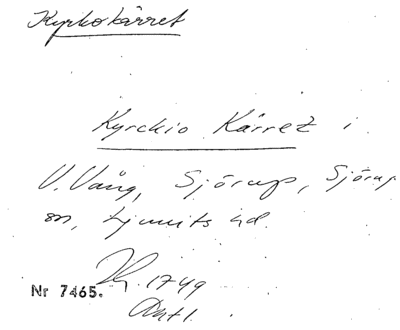 Kyrkokärret
Kyrckio Kärret i
V. Vång, Sjörup, Sjörup
sn, Ljunits hd.
1749
Nr 7465.